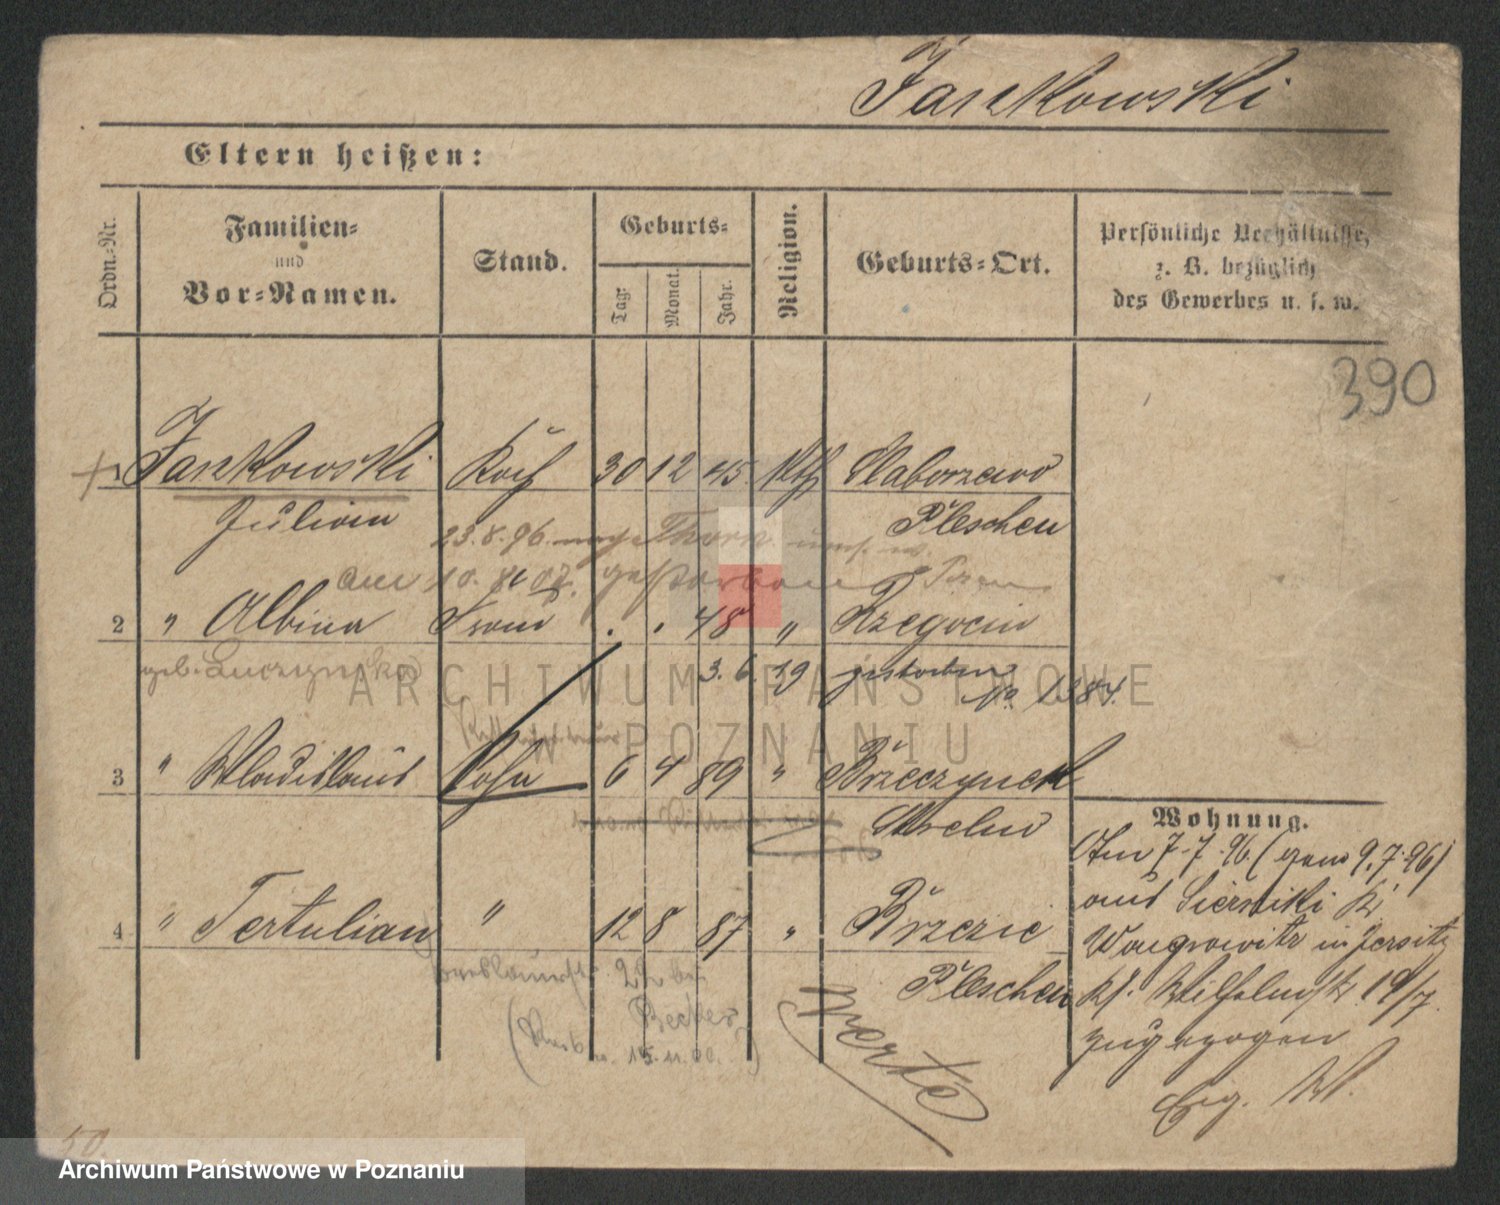 Jankowski
Eltern heißen:
Ordn.-Nr.
Familien-
und
Vor-Namen.
Stand.
Geburts-
Tag:
Monat.
Jahr.
Religion.
Geburts-Ort.
Persönliche Verhältnisse,
z. B. bezüglich
des Gewerbes u. s. w.
390
1 Jankowski Koch 30 12 45 kth Slaborzewo
Julian Pleschen
23.8.96. nach Thorn
am 10. 07. gestorben
2 " Albina Frau . . 48 " Rzegocin
geb. Luczynska 3. 6. 19 gestorben
No 1384.
3 " Wladislaus Sohn 6 4 89 "
Strelno
4 " Tertulian " 12 8 87 " Brzezie
Pleschen
22 bei
Becker
15.11.00.
Wohnung.
Am 7.7.96. (gem 9.7.96)
aus Siernicki Kr
Wongrowitz in Jersitz
19/7.
zugezogen
Erg. W.
verte
50
ARCHIWUM PAŃSTWOWE
W POZNANIU
Archiwum Państwowe w Poznaniu